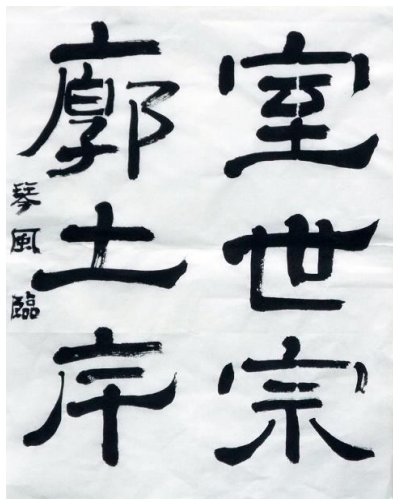 室世宗
廓土斥
琴風臨